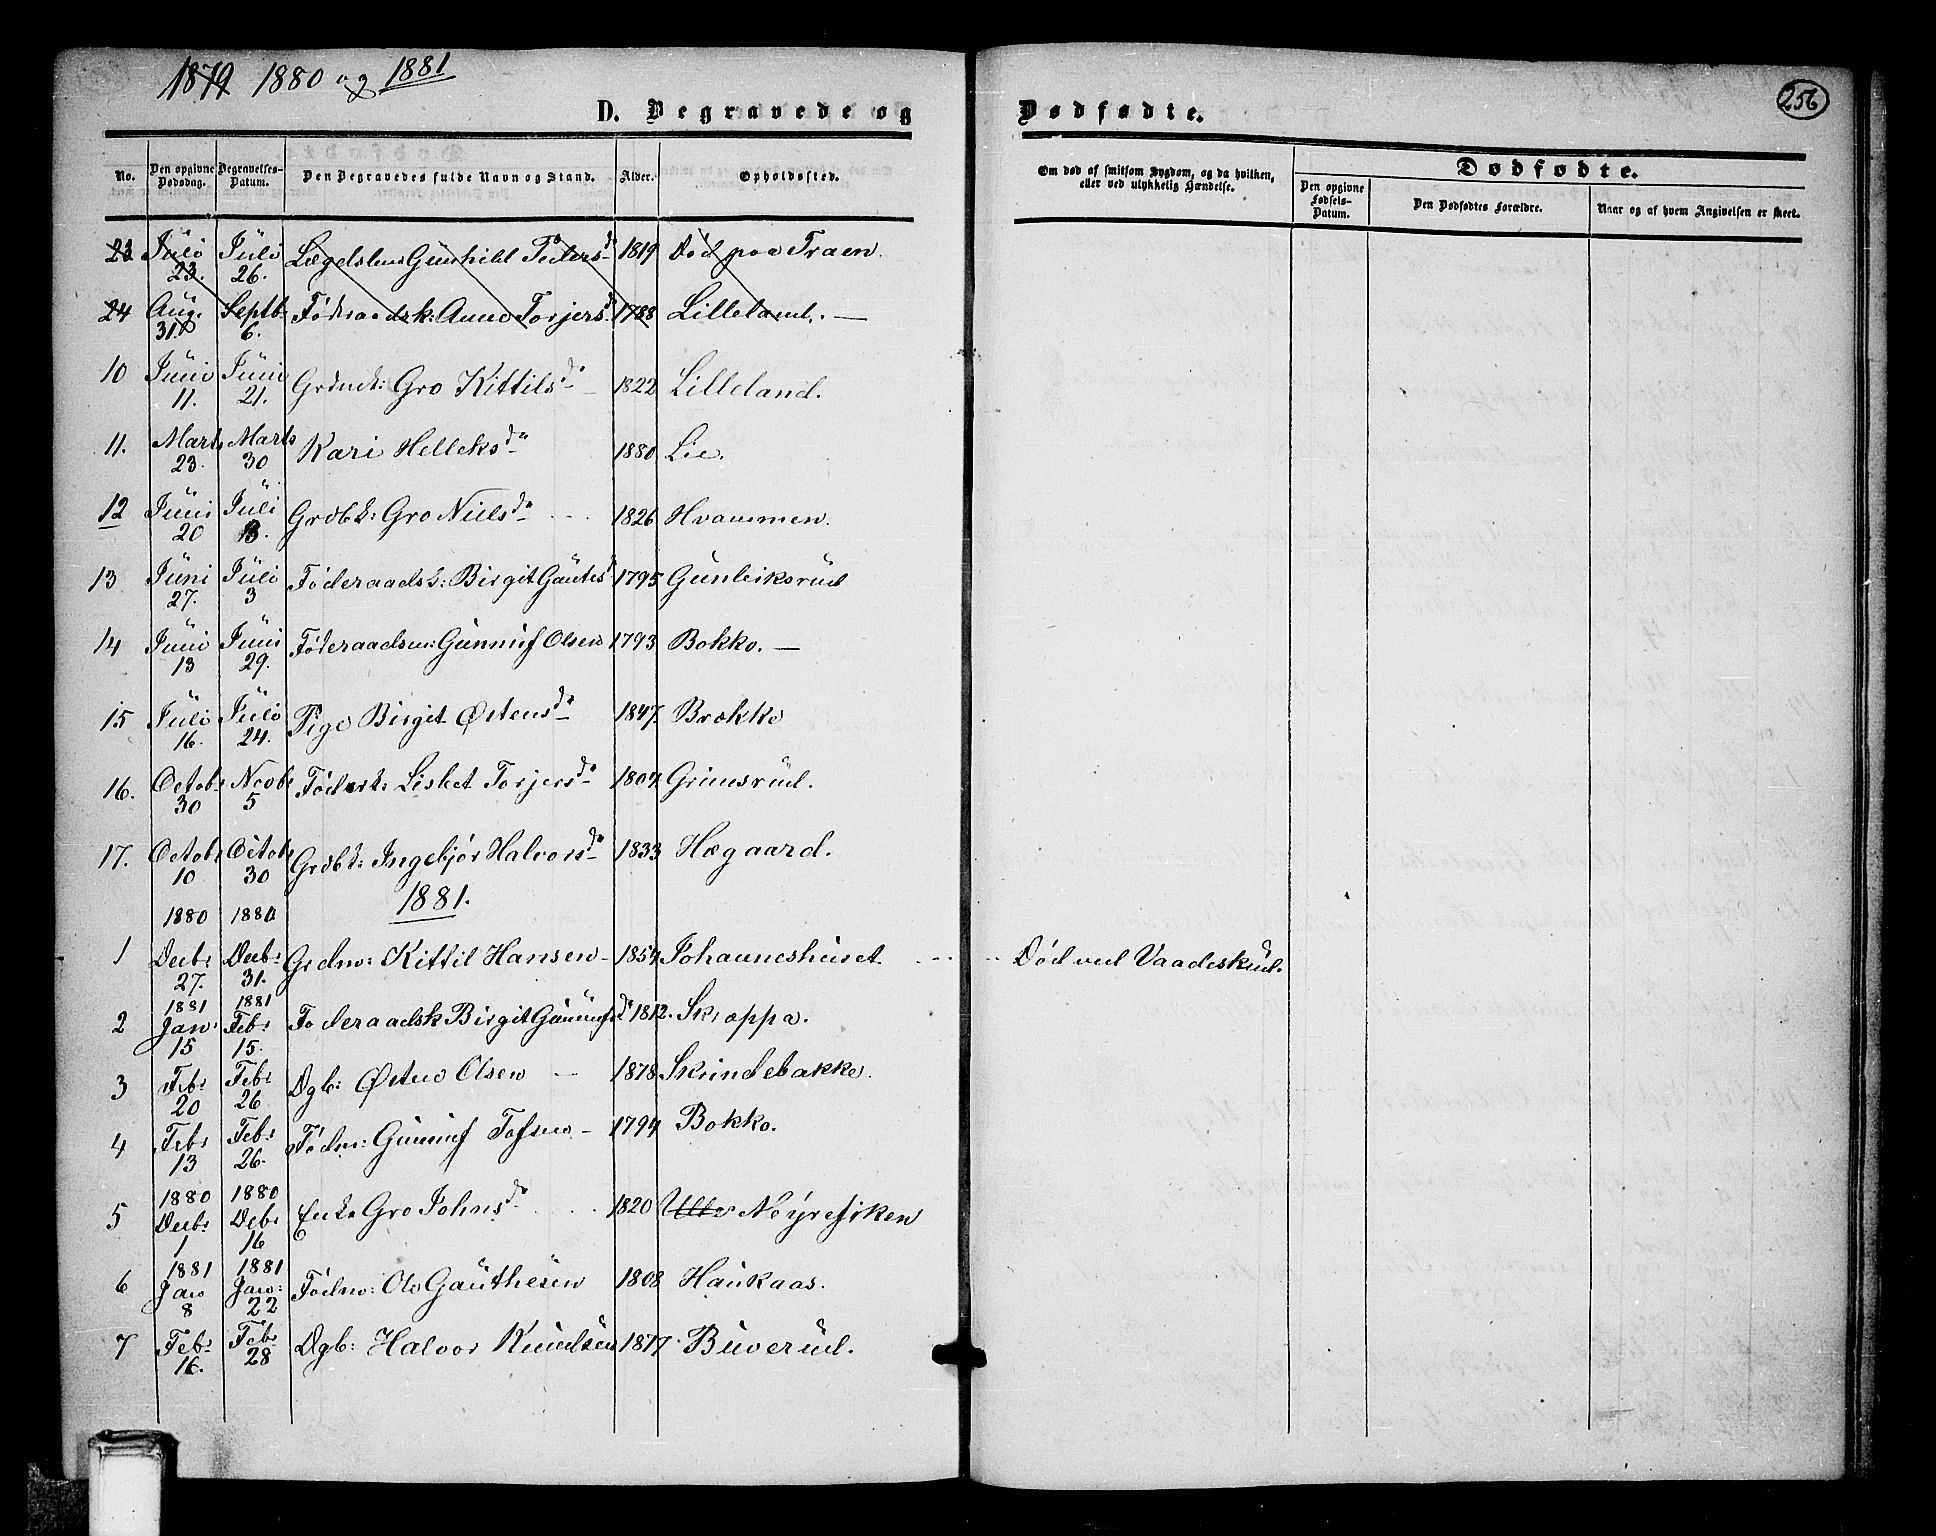 1879 1880 og 1881
256
D. Begravede og Dødfødte.
No. Den opgivne Dødsdag. Begravelses-Datum. Den Begravedes fulde Navn og Stand. Alder. Opholdssted. Om død af smitsom Sygdom, og da hvilken, eller ved ulykkelig Hændelse. Dødfødte.
Den opgivne Fødsels-Datum. Den Dødfødtes Forældre. Naar og af hvem Angivelsen er skeet.
23 Juli 23. Juli 26. Lægdslem Gunhild Peders da 1819 Død paa Traen.
24 Aug. 31 Septb. 6. Føderaadsk: Anne Torjers da 1788 Lilleland. —
10 Juni 11. Juni 21. Grdmk: Gro Kittils da 1822 Lilleland.
11. Marts 23. Marts 30 Kari Helleks da 1880 Lie.
12 Juni 20 Juli 3. Grdbk: Gro Niels da 1826 Hvammen.
13 Juni 27. Juli 3 Føderaadsk: Birgit Gautes d 1795 Gunleiksrud
14 Juni 13 Juni 29. Føderaadsm: Gunnuf Olsen 1793 Bokko. —
15 Juli 16. Juli 24. Pige Birgit Østens da 1847. Brokke
16. Octobr 30 Novbr 5 Fødrk: Lisbet Torjers da 1807 Grimsrud.
17. Octobr 10 Octobr 30 Grdbk: Ingebjør Halvors da 1833 Hægaard.
1881.
1880 1880
1 Decbr 27. Decbr 31. Grdm: Kittil Hansen 1854 Johanneshuset. Død ved Vaadeskud.
1881 1881
2 Jan: 15 Febr 15. Føderaadsk Birgit Gunnufs da 1812. Skoppa.
3 Febr 20 Febr 26 Dgb: Østen Olsen — 1878 Skrindebakke.
4 Febr 13 Febr 26. Fødm: Gunnuf Tofsen — 1794 Bokko.
1880 1880
5 Decbr 1 Debr 16 Enke Gro Johns da 1820 Nøyrefiken
1881 1881
6 Jan 8 Jan: 22 Fødm: Ole Gauthesen 1808 Haukaas.
7 Febr 16. Febr 28 Dgb: Halvor Knudsen 1877. Buverud.